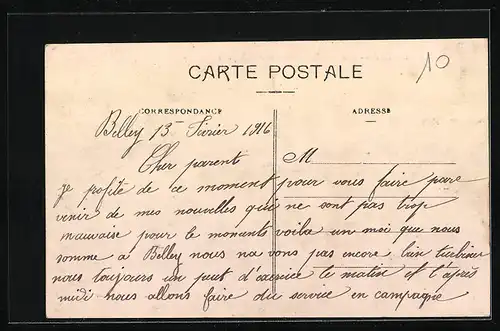 10
CARTE POSTALE
CORRESPONDANCE
ADRESSE
Belley 15 Fivier 1916
Cher parent
M
je profite de ce moment pour vous faire pare
venir de mes nouvelles qui ne sont pas trop
mauvaise pour le moments voila un moi que nous
somme à Belley nous na vons pas encore bien
nous toujours un peut d'exercice le matin et l'après
midi nous allons faire du service en campagne